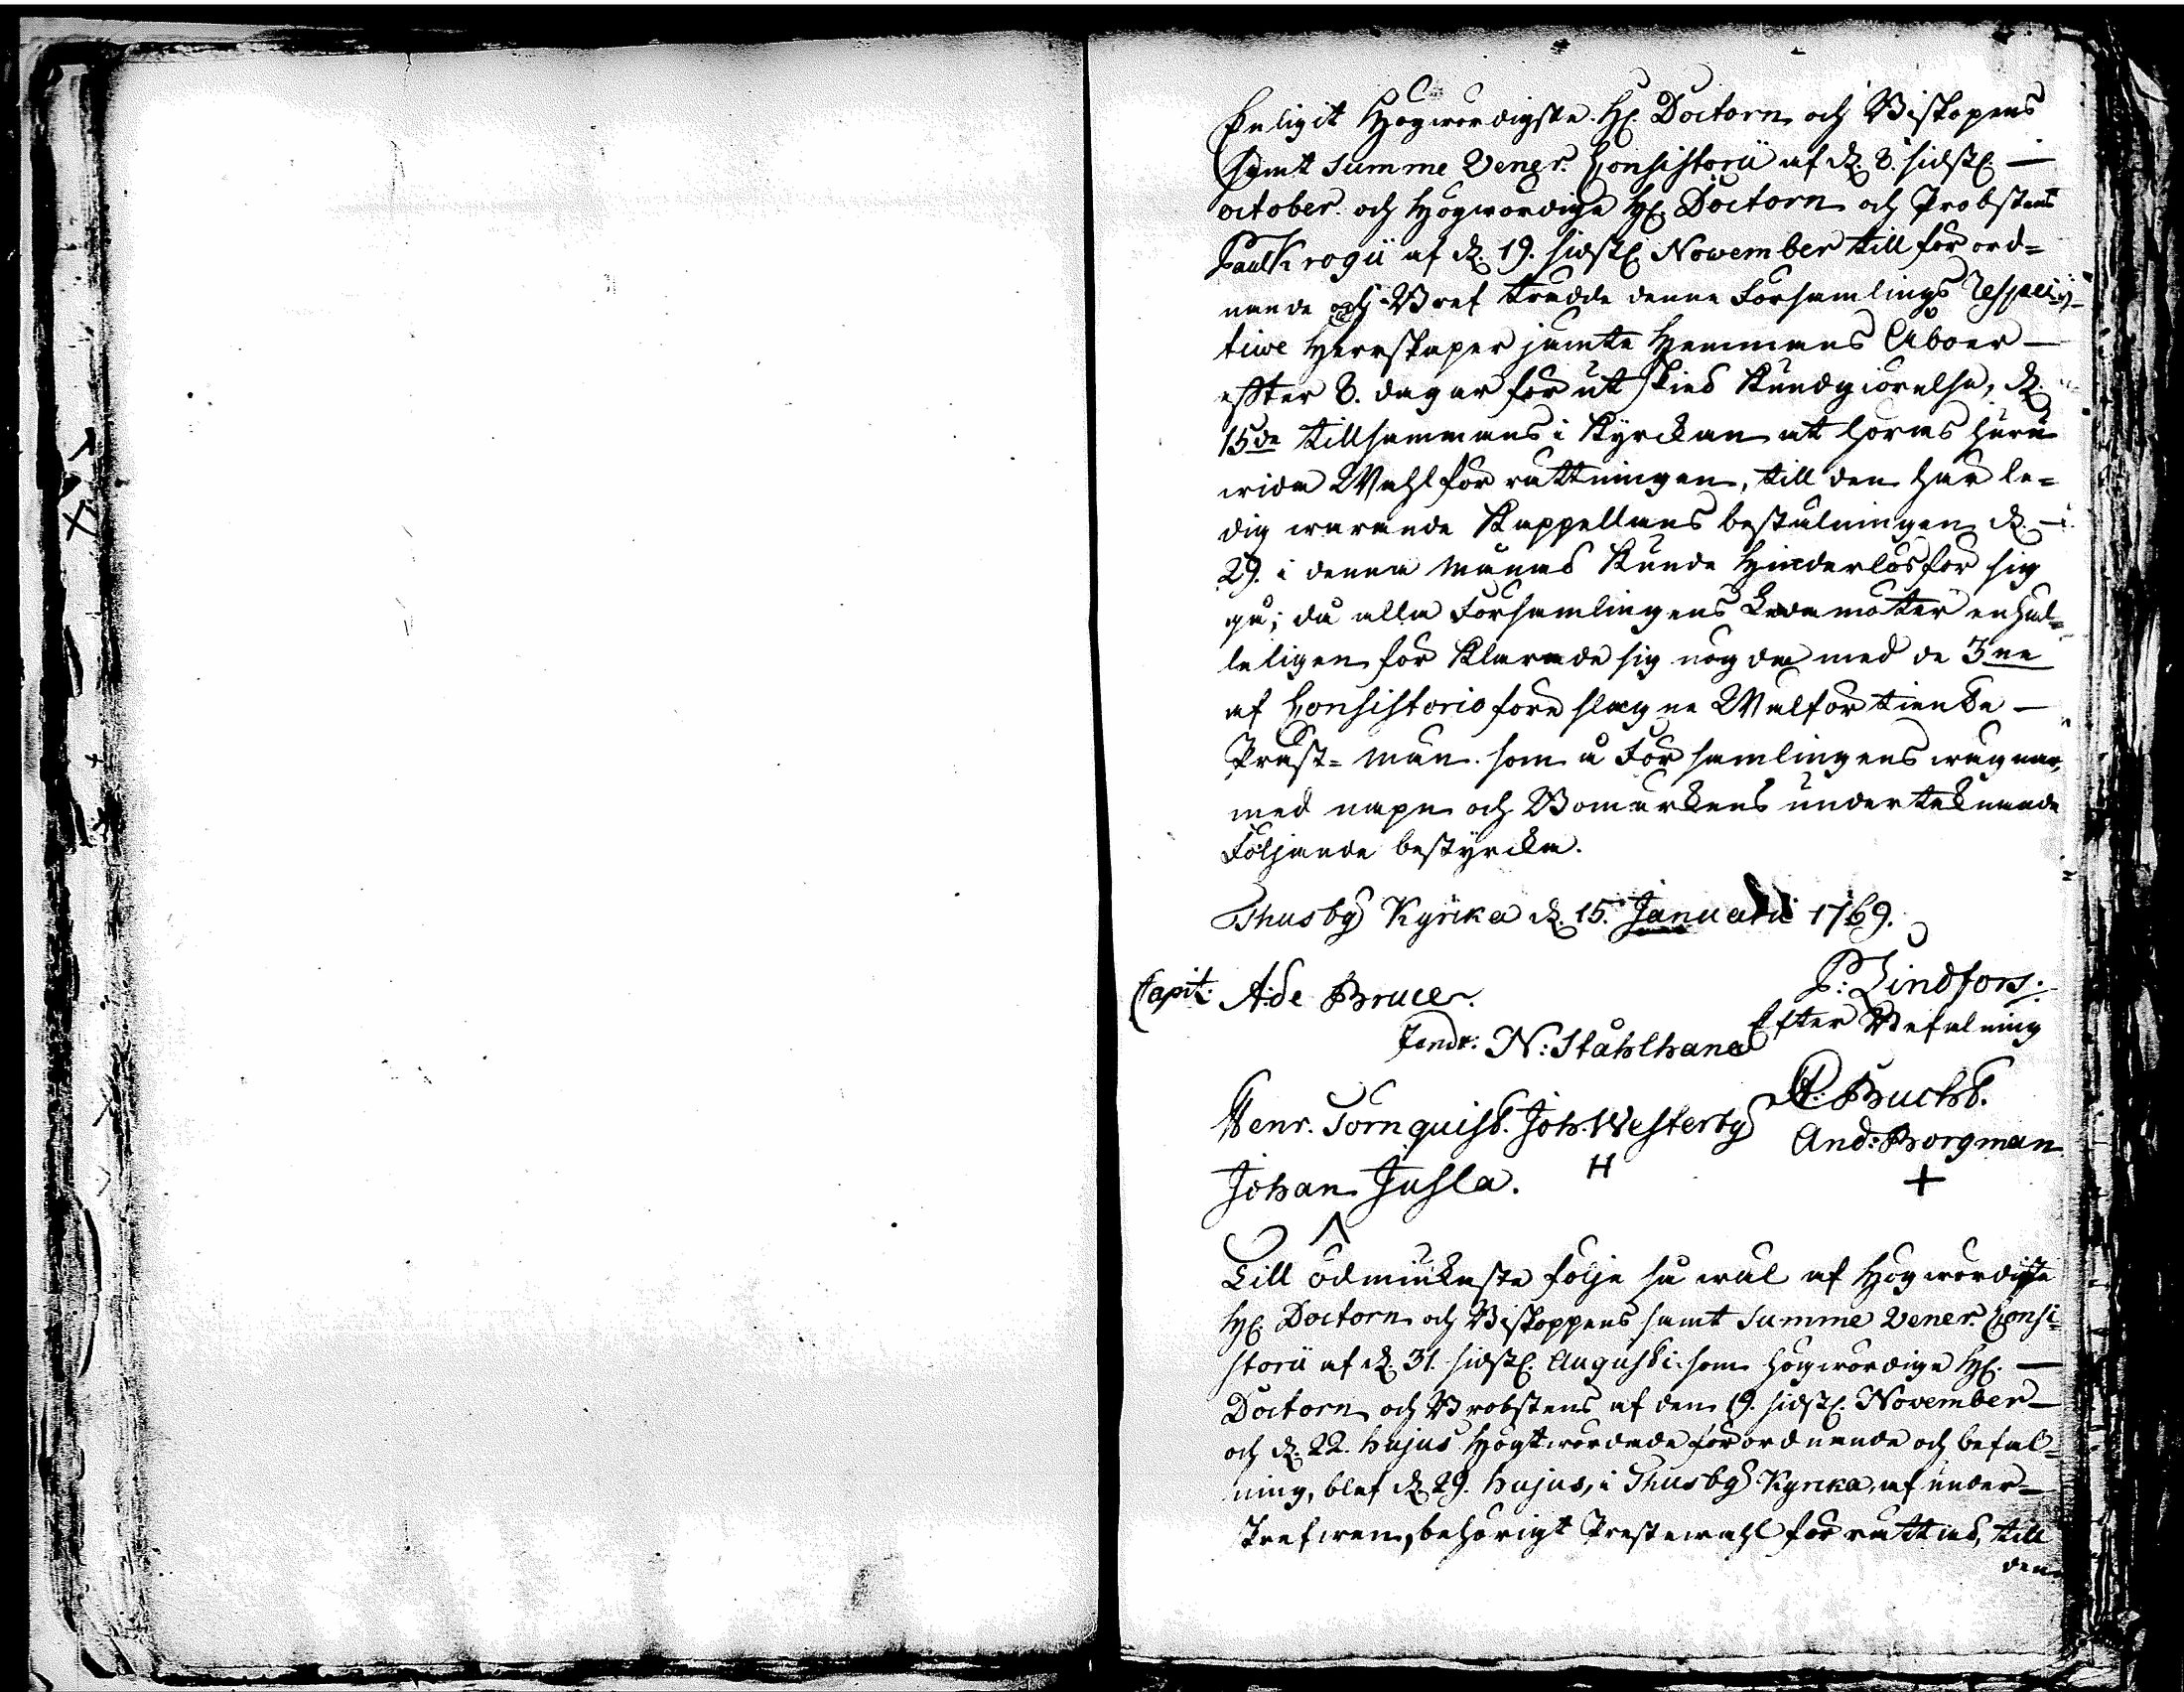 Enligit Högwördigste H: Doctorn och Biskopens
samt Summe Vener. Consistorii af d. 8. sidstl. —
october och Högwördige H: Doctorn och Probstens
Paul Krogii af d. 19. sidstl. November till förord=
nande och Bref trädde denne Församlings Respec=
tive Herrskaper jämte Hemmans Åboer —
effter 8. dagar förut skied Kundgiörelse, d.
15de tillsammans i Kyrckan at höras huru
wida Wahlförrättningen, till den här le=
dig warande Kappellans beställningen d. —
29. i denna månad Kunde Hinderlös för sig
gå; då alla Församlingens Ledamöter enhäl=
leligen förklarade sig nögda med de 3ne
af Consistorio föreslagne Wälförtiente —
Präst=män som å Församlingens wägnar,
med namn och Bomärkens undertecknande
Följande bestyrcka.
Thusby Kyrcka d. 15. Januarii 1769.
P: Lindfors.
Capit: A: de Bruce.
Efter Befalning
Fendr: N: Stålhane
A: Bucht.
Henr. Törnquist. Joh. Westerby
And: Borgman
H
+
Johan Jusla.
Till ödmiukaste följe så wäl af Högwördigste
H: Doctorn och Biskoppens samt Summe Vener. Consi=
storii af d. 31. sidstl. Augusti som högwördige H: —
Doctorn och Probstens af den 19. sidstl. November —
och d. 22. hujus Högtwördade förordnande och befal=
ning, blef d. 29. hujus, i Thusby Kyrcka, af under=
skrefwen, behörigt Prestewahl förrättad, till
den